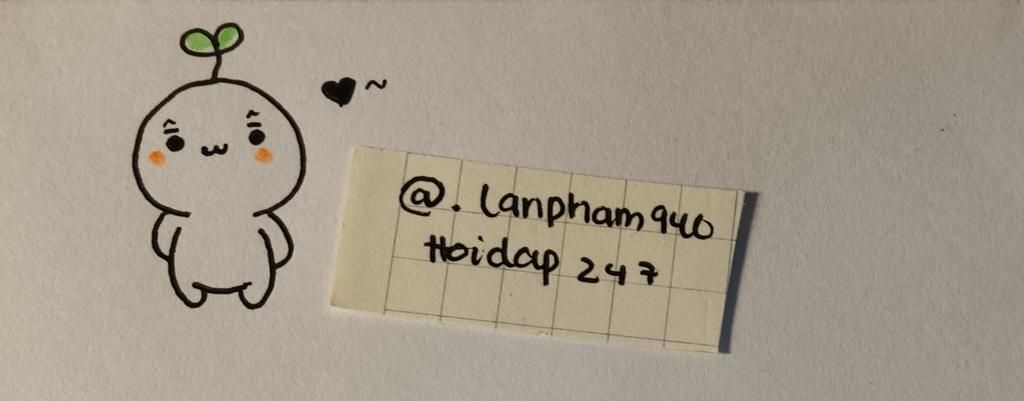 @. lanpham940
Hoidap 247